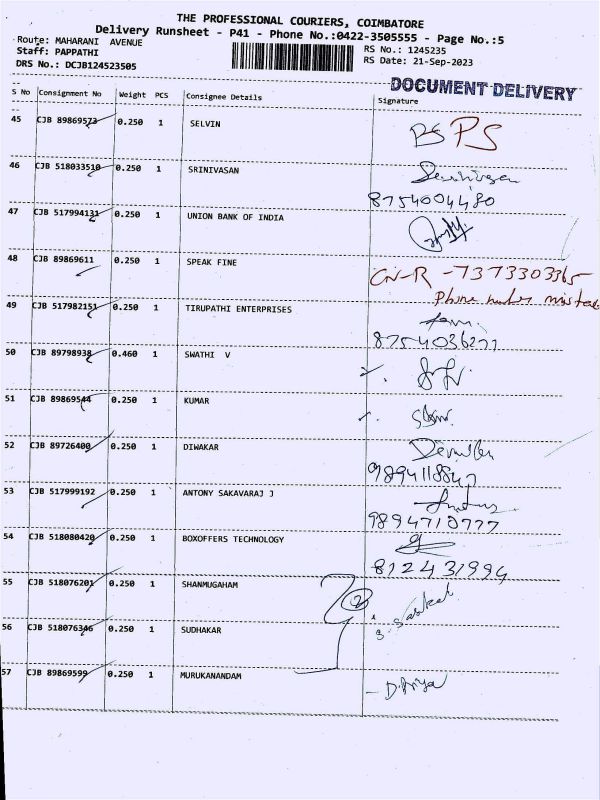 THE PROFESSIONAL COURIERS, COIMBATORE
Delivery Runsheet - P41 - Phone No.:0422-3505555 - Page No.:5
Route: MAHARANI AVENUE
RS No.: 1245235
Staff: PAPPATHI
RS Date: 21-Sep-2023
DRS No.: DCJB124523505
DOCUMENT DELIVERY
S No Consignment No Weight PCS Consignee Details Signature
45 CJB 89869573 0.250 1 SELVIN PS PS
46 CJB 518033510 0.250 1 SRINIVASAN
8754004480
47 CJB 517994131 0.250 1 UNION BANK OF INDIA
48 CJB 89869611 0.250 1 SPEAK FINE CN-R - 7373303365
Phone number mistake
49 CJB 517982151 0.250 1 TIRUPATHI ENTERPRISES
8754036277
50 CJB 89798938 0.460 1 SWATHI V
51 CJB 89869544 0.250 1 KUMAR
52 CJB 89726400 0.250 1 DIWAKAR
9894118847
53 CJB 517999192 0.250 1 ANTONY SAKAVARAJ J
9894710777
54 CJB 518080420 0.250 1 BOXOFFERS TECHNOLOGY
8124 31994
55 CJB 518076201 0.250 1 SHANMUGHAM 2
56 CJB 518076346 0.250 1 SUDHAKAR
57 CJB 89869599 0.250 1 MURUKANANDAM - D.Priya